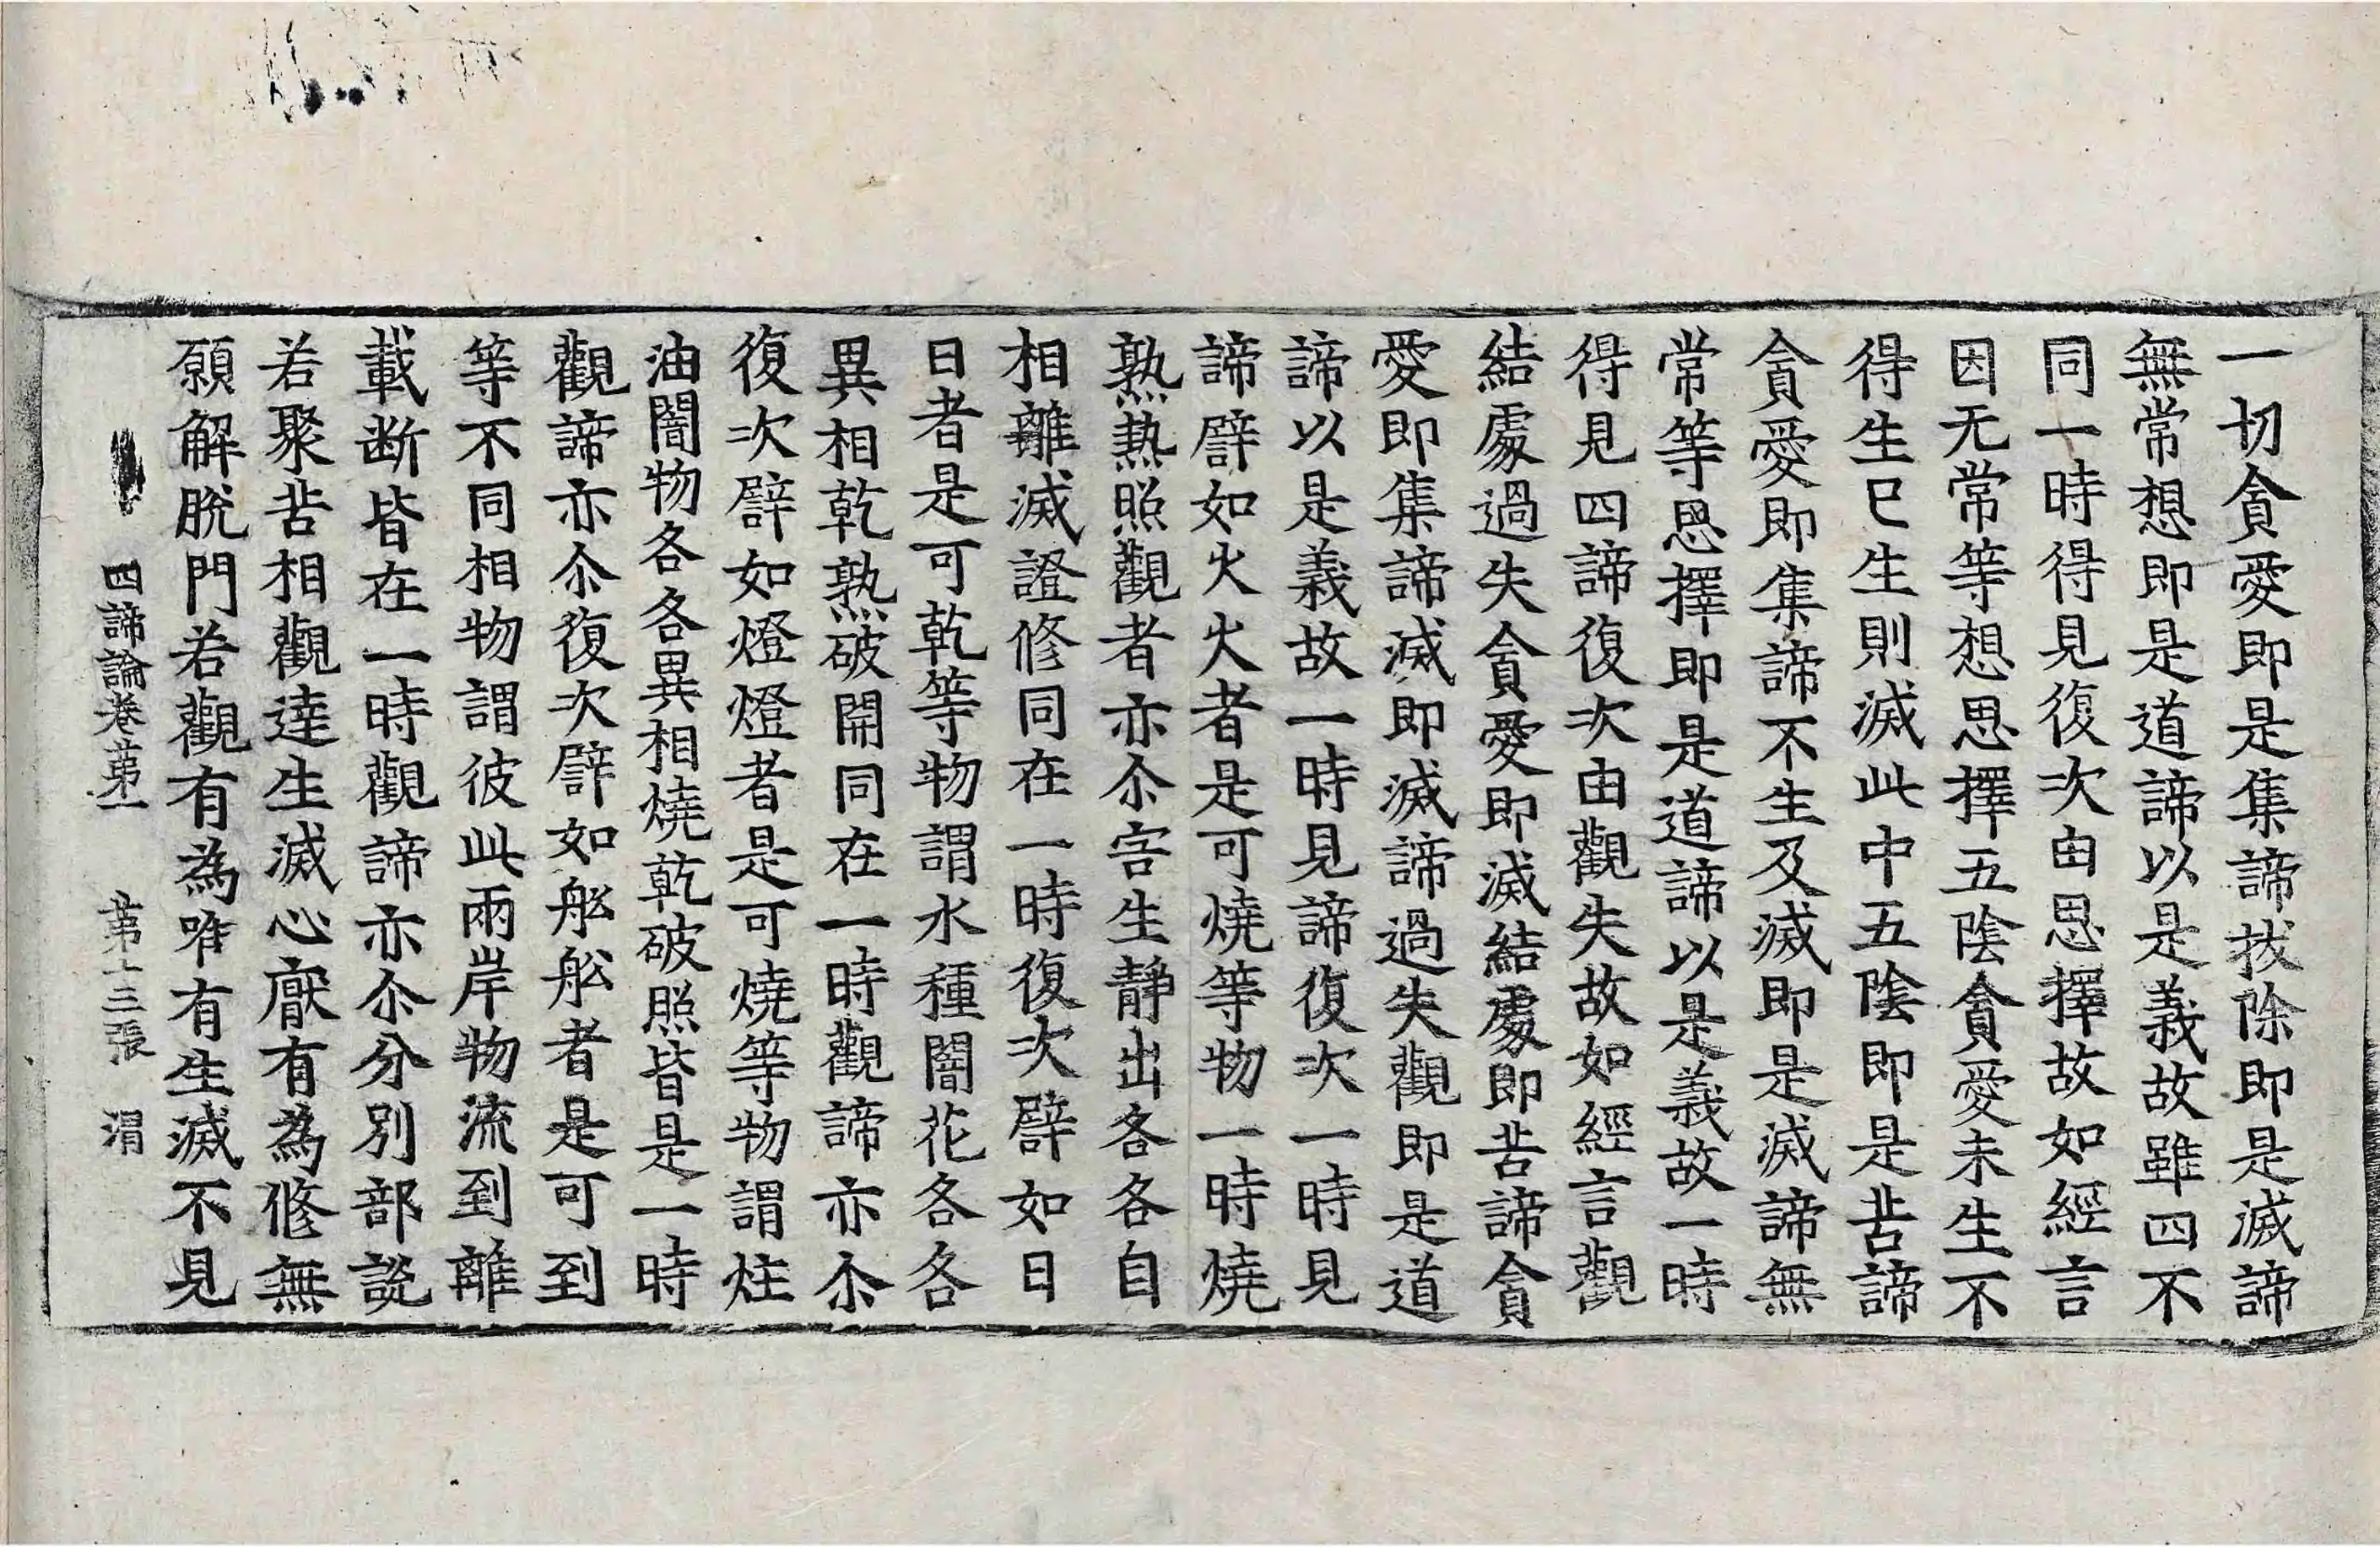 一切貪愛即是集諦拔除即是滅諦
無常想即是道諦以是義故雖四不
同一時得見復次由思擇故如經言
因无常等想思擇五陰貪愛未生不
得生已生則滅此中五陰即是苦諦
貪愛即集諦不生及滅即是滅諦無
常等思擇即是道諦以是義故一時
得見四諦復次由觀失故如經言觀
結處過失貪愛即滅結處即苦諦貪
愛即集諦滅即滅諦過失觀即是道
諦以是義故一時見諦復次一時見
諦譬如火火者是可燒等物一時燒
熟熱照觀者亦尒害生靜出各各自
相離滅證修同在一時復次譬如日
日者是可乾等物謂水種闇花各各
異相乾熟破開同在一時觀諦亦尒
復次譬如燈燈者是可燒等物謂炷
油闇物各各異相燒乾破照皆是一時
觀諦亦尒復次譬如舩舩者是可到
等不同相物謂彼此兩岸物流到離
載断皆在一時觀諦亦尒分別部說
若聚苦相觀達生滅心厭有為修無
願解脫門若觀有為唯有生滅不見
四諦論卷苐一 苐十三張 渭